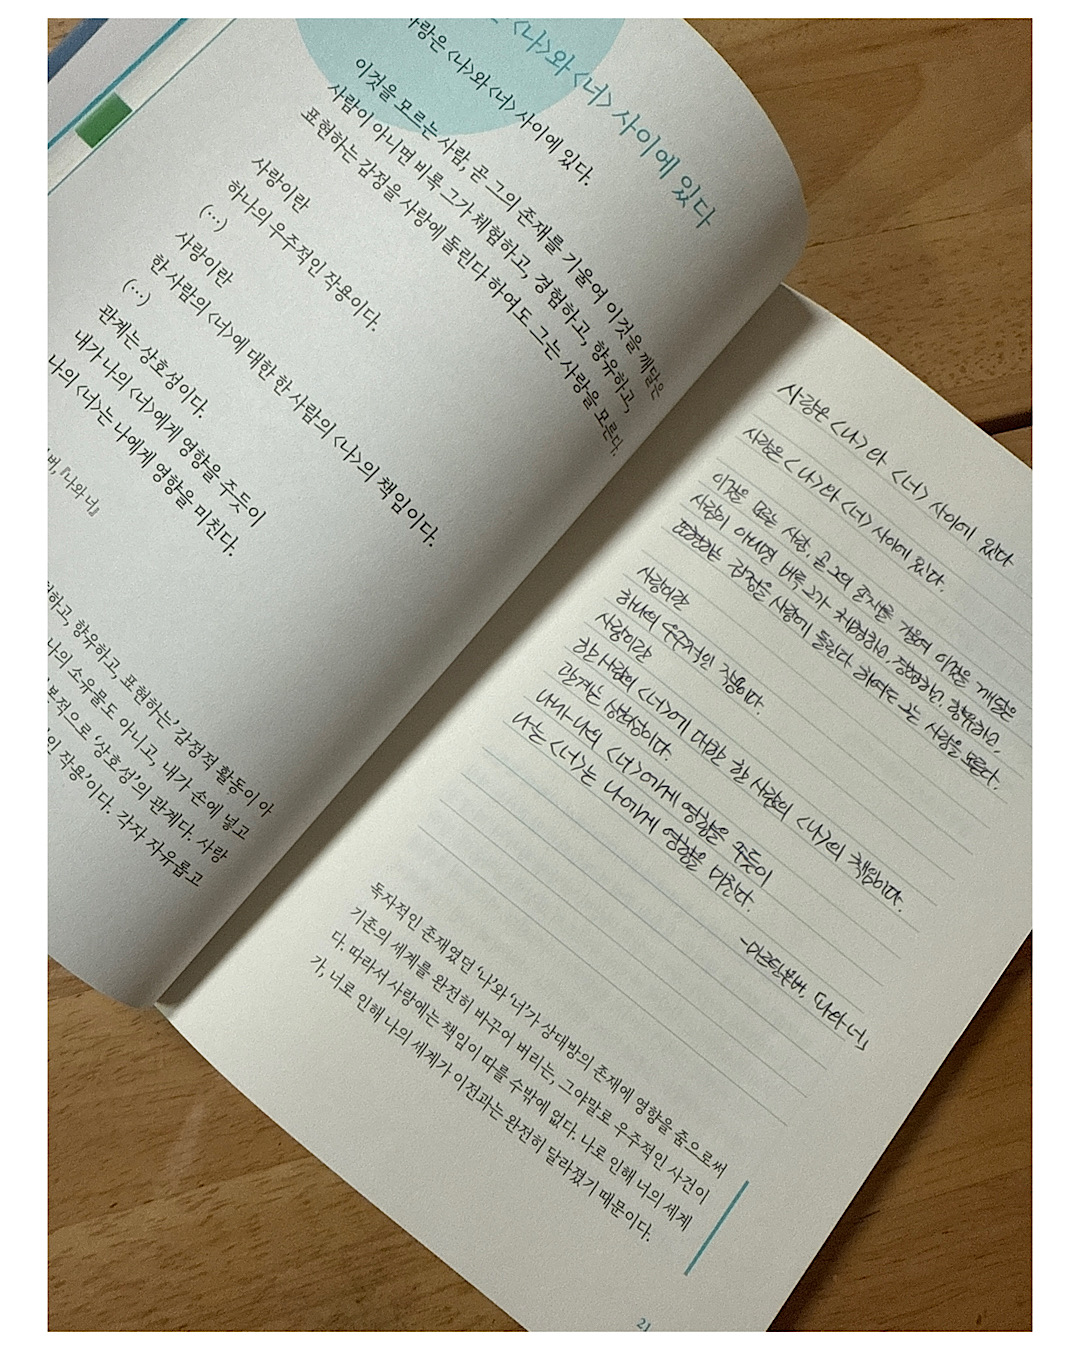 <나>와 <너> 사이에 있다
사랑은 <나>와 <너> 사이에 있다.
이것을 모르는 사람, 곧 그의 존재를 기울여 이것을 깨달은
사람이 아니면 비록 그가 체험하고, 경험하고, 향유하고,
표현하는 감정을 사랑에 돌린다 하여도 그는 사랑을 모른다.
사랑이란
하나의 우주적인 작용이다.
(…)
사랑이란
한 사람의 <너>에 대한 한 사람의 <나>의 책임이다.
(…)
관계는 상호성이다.
내가 나의 <너>에게 영향을 주듯이
나의 <너>는 나에게 영향을 미친다.
『나와 너』
향유하고, 표현하는' 감정적 활동이 아
나의 소유물도 아니고, 내가 손에 넣고
'상호성'의 관계다. 사랑
작용'이다. 각자 자유롭고
사랑은 <나>와 <너> 사이에 있다
사랑은 <나>와 <너> 사이에 있다.
이것을 모르는 사람, 곧 그의 존재를 기울여 이것을 깨달은
사람이 아니면 비록 그가 체험하고, 경험하고, 향유하고,
표현하는 감정을 사랑에 돌린다 하여도 그는 사랑을 모른다.
사랑이란
하나의 우주적인 작용이다.
사랑이란
한 사람의 <너>에 대한 한 사람의 <나>의 책임이다.
관계는 이다.
내가 나의 <너>에게 영향을 주듯이
나는 <너>는 나에게 영향을 미친다.
-마르틴부버, 「나와 너」
독자적인 존재였던 '나'와 '너'가 상대방의 존재에 영향을 줌으로써
기존의 세계를 완전히 바꾸어 버리는, 그야말로 우주적인 사건이
다. 따라서 사랑에는 책임이 따를 수밖에 없다. 나로 인해 너의 세계
가, 너로 인해 나의 세계가 이전과는 완전히 달라졌기 때문이다.
21